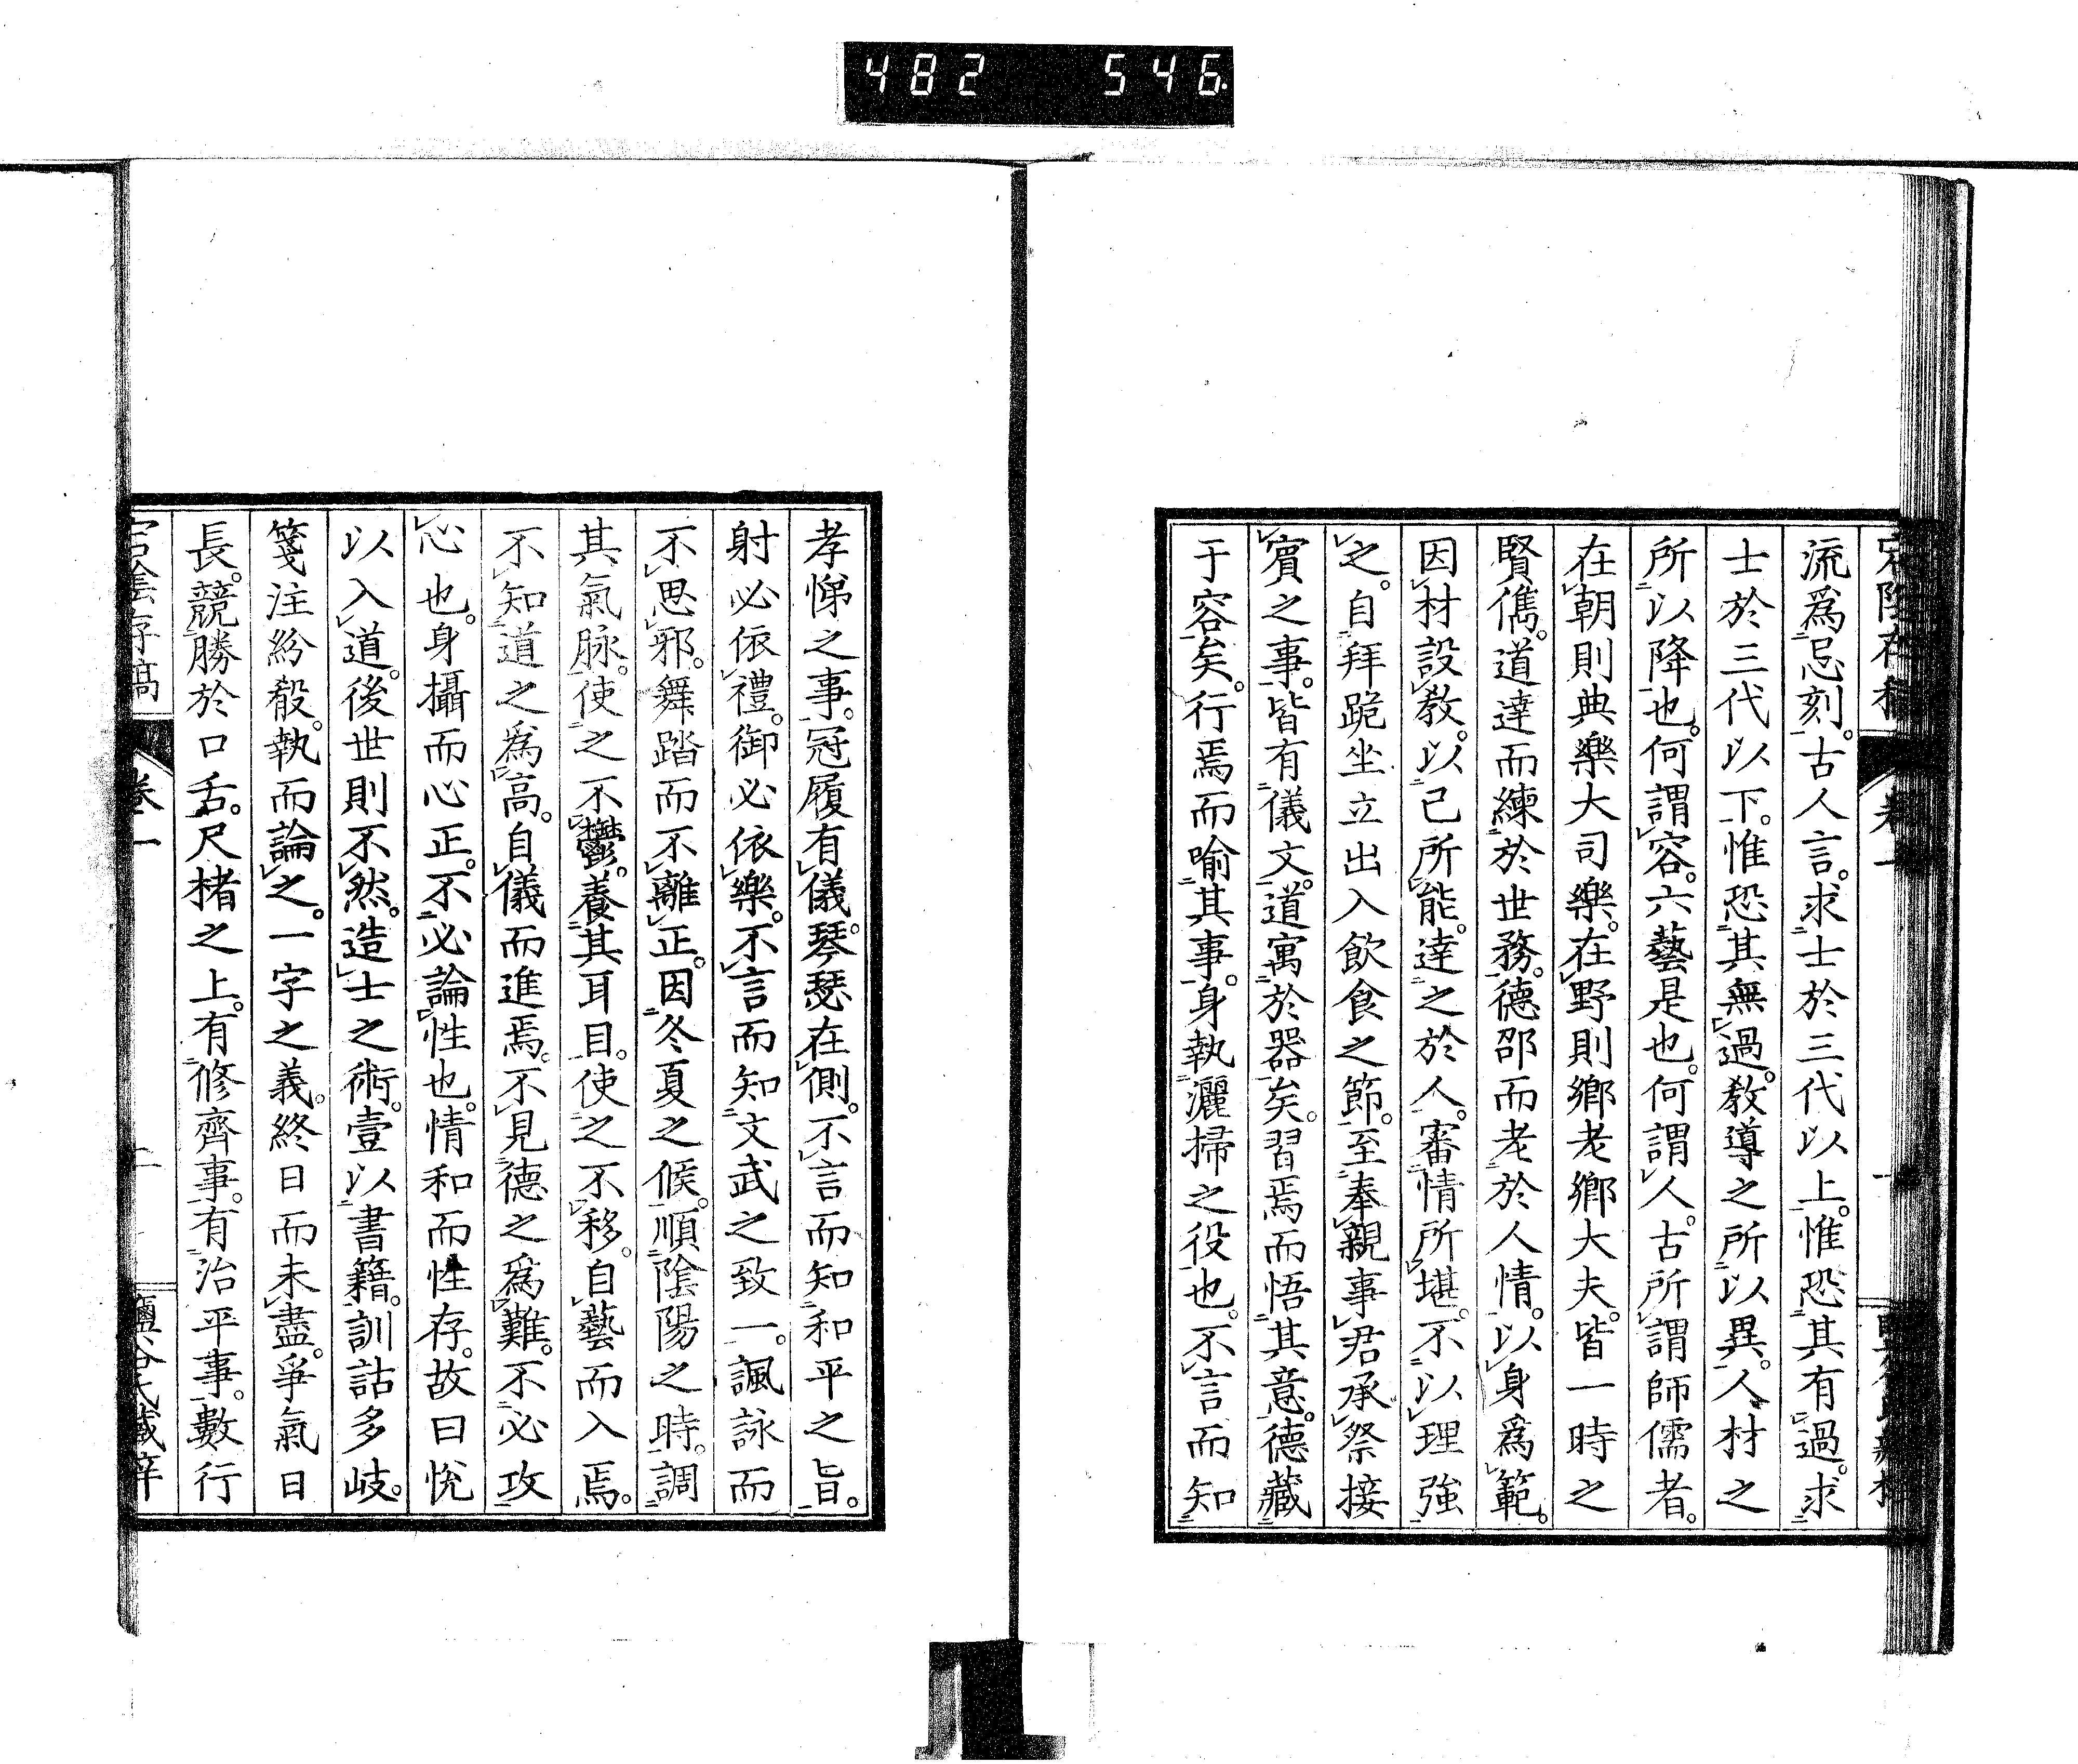 482 546.
流爲忌刻。古人言。求士於三代以上。惟恐其有過。求
士於三代以下。惟恐其無過。教導之所以異。人材之
所以降也。何謂容。六藝是也。何謂人。古所謂師儒者。
在朝則典樂大司樂。在野則鄉老鄉大夫。皆一時之
賢儁。道達而練於世務。德邵而老於人情。以身爲範。
因材設教。以己所能。達之於人。審情所堪。不以理強
之。自拜跪坐立出入飲食之節。至奉親事君承祭接
賓之事。皆有儀文。道寓於器矣。習焉而悟其意。德藏
于容矣。行焉而喻其事。身執灑掃之役也。不言而知
孝悌之事。冠履有儀。琴瑟在側。不言而知和平之旨。
射必依禮。御必依樂。不言而知文武之致一。諷詠而
不思邪。舞踏而不離正。因冬夏之候。順陰陽之時。調
其氣脉。使之不鬱。養其耳目。使之不移。自藝而入焉。
不知道之爲高。自儀而進焉。不見德之爲難。不必攻
心也。身攝而心正。不必論性也。情和而性存。故曰悅
以入道。後世則不然。造士之術。壹以書籍。訓詁多岐。
箋注紛殽。執而論之。一字之義。終日而未盡。爭氣日
長。競勝於口舌。尺楮之上。有修齊事。有治平事。數行
宕陰存稿 卷一 二 鹽谷氏藏梓